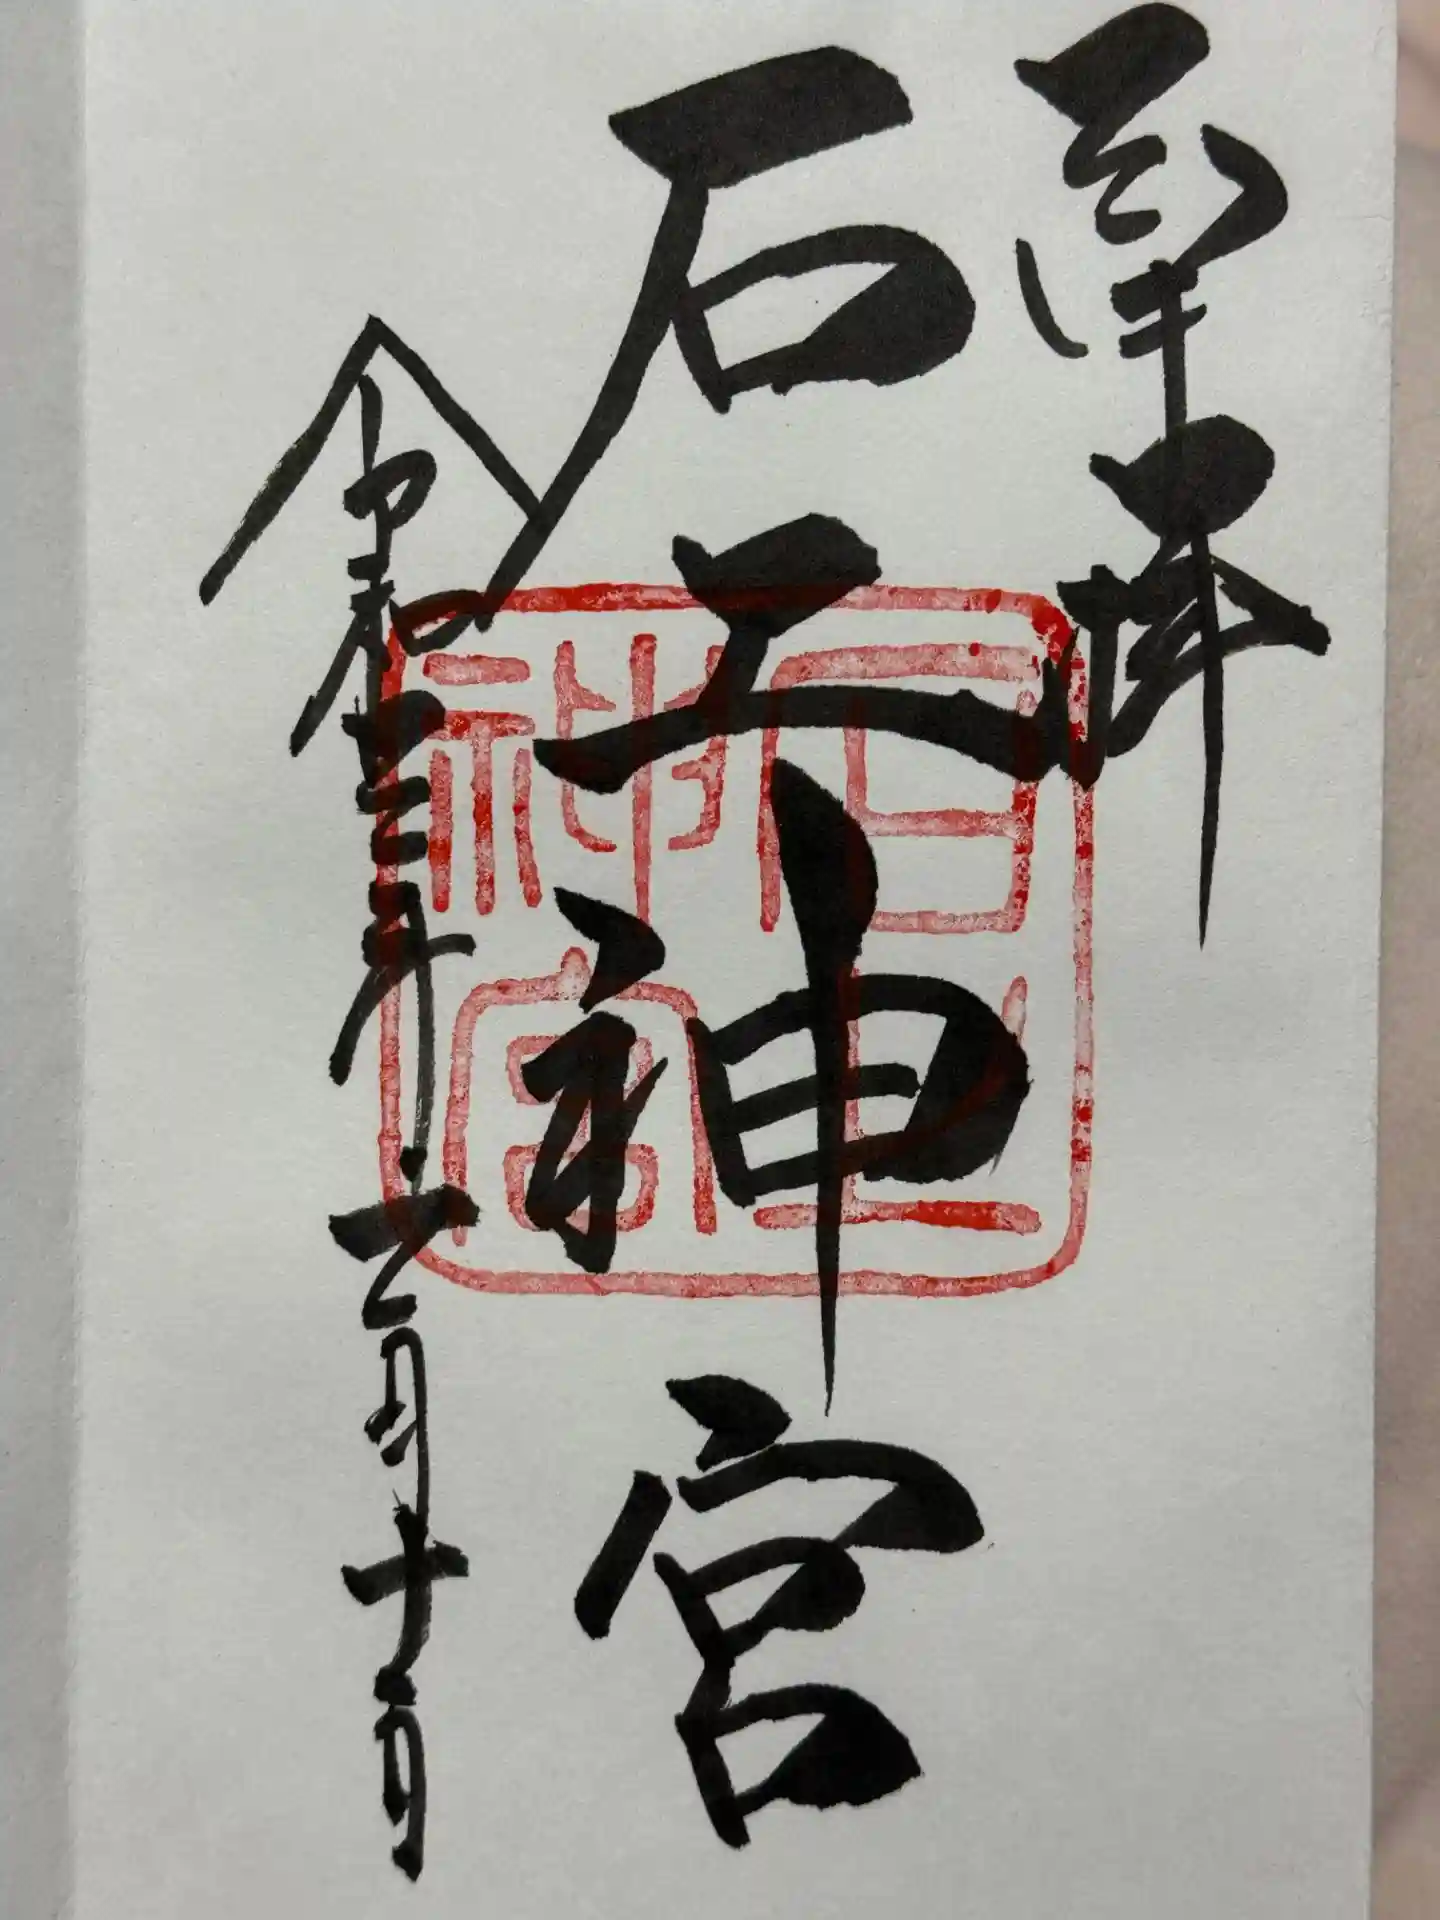 奉拝
石上神宮
令和年六月十日
石上
神宮